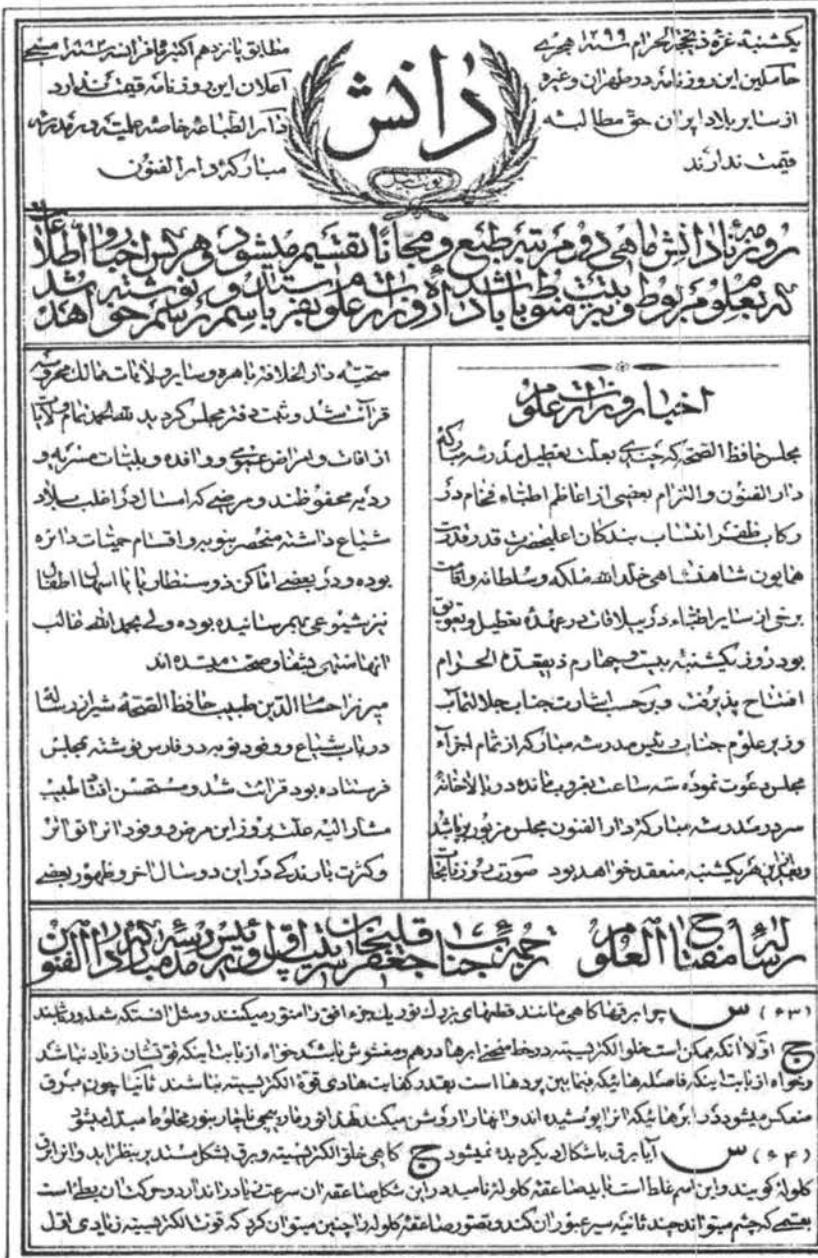 یکشنبه غره ذیحجة الحرام سنه ۱۲۹۹ هجری
حاملین این روزنامه در طهران و غیره
از سایر بلاد ایران حق مطالبه
قیمت ندارند
دانش
مطابق پانزدهم اکتبر فرانسه ۱۸۸۲ مسیحی
اعلان این روزنامه قیمت ندارد
دارالطباعه خاصه علمیه در مدرسه
مبارکه دارالفنون
روزنامه دانش ماهی دو مرتبه طبع و مجانا تقسیم میشود و هر کس اخبار و اطلاعات
که بعلوم مربوط و تربیت منوط باشد باداره وزارت علوم بفرستد باسم و رسم نوشته خواهد شد
اخبار وزارت علوم
مجلس حافظ الصحه که چندی بعلت تعطیل مدرسه مبارکه
دارالفنون و التزام بعضی از اعاظم اطباء فخام در
رکاب ظفر انتساب بندگان اعلیحضرت قدر قدرت
همایون شاهنشاهی خلدالله ملکه و سلطانه و اقامت
برخی از سایر اطباء در ییلاقات در عهده تعطیل و تعویق
بود روز یکشنبه بیست و چهارم ذیقعدة الحرام
افتتاح پذیرفت و بر حسب اشارت جناب جلالتمآب
وزیر علوم جناب رئیس مدرسه مبارکه از تمام اجزاء
مجلس دعوت نموده سه ساعت بغروب مانده در بالاخانه
سردر مدرسه مبارکه دارالفنون مجلس مزبور برپا شد
و بعد از این هر یکشنبه منعقد خواهد بود صورت
صحتیه دارالخلافه باهره و سایر ولایات ممالک محروسه
قرائت شد و ثبت دفتر مجلس گردید لله الحمد تمام ولایات
از آفات و امراض عمومی و وافده و بلیات مسریه و
ردیه محفوظند و مرضی که امسال در اغلب بلاد
شیاع داشته منحصر بنوبه و اقسام حمیات دائره
بوده و در بعضی اماکن ذوسنطاریا با اسهال اطفال
نیز شیوعی بهم رسانیده بوده ولی بحمدالله غالب
آنها منتهی بشفا و صحت شده اند
میرزا حسام الدین طبیب حافظ الصحه شیراز رساله
در باب شیاع و وفود نوبه در فارس نوشته بمجلس
فرستاده بود قرائت شد و مستحسن افتاد طبیب
مشارالیه علت بروز این مرض و وفود آنرا تواتر
و کثرت بارندگی در این دو سال آخر و ظهور بعضی
رساله مفتاح العلوم ترجمه جناب جعفر قلیخان سرتیپ اول و رئیس مدرسه مبارکه دارالفنون
(۶۳) س چرا برقها گاهی مانند قطعهای بزرگ نور یک جزء افق را منور میکنند و مثل آنست که شعله ور شده‌اند
ج اولا آنکه ممکن است خلو الکتریسیته در خط منحنی ابرها درهم و مغشوش باشد خواه از بابت اینکه قوتشان زیاد نباشد
و خواه از بابت اینکه فاصله هائیکه فیمابین پردها است بقدر کفایت هادی قوه الکتریسیته نباشند ثانیا چون برق
منعکس میشود در ابرهائیکه آنرا پوشیده اند و آنها را روشن میکند لهذا نور مارپیچی ناچار بنور مخلوط مبدل میشود
(۶۴) س آیا برق باشکال دیگر دیده نمیشود ج گاهی خلو الکتریسیته و برق بشکل مستدیر بنظر آید و آنرا برق
گلوله گویند و این اسم غلط است باید صاعقه گلوله نامید در این شکل صاعقه آن سرعت زیاد را ندارد و حرکت آن بطئ است
بقسمی که چشم میتواند چند ثانیه سیر عبور آن کند و تصور صاعقه گلوله را چنین میتوان کرد که قوت الکتریسیته زیادی اقل